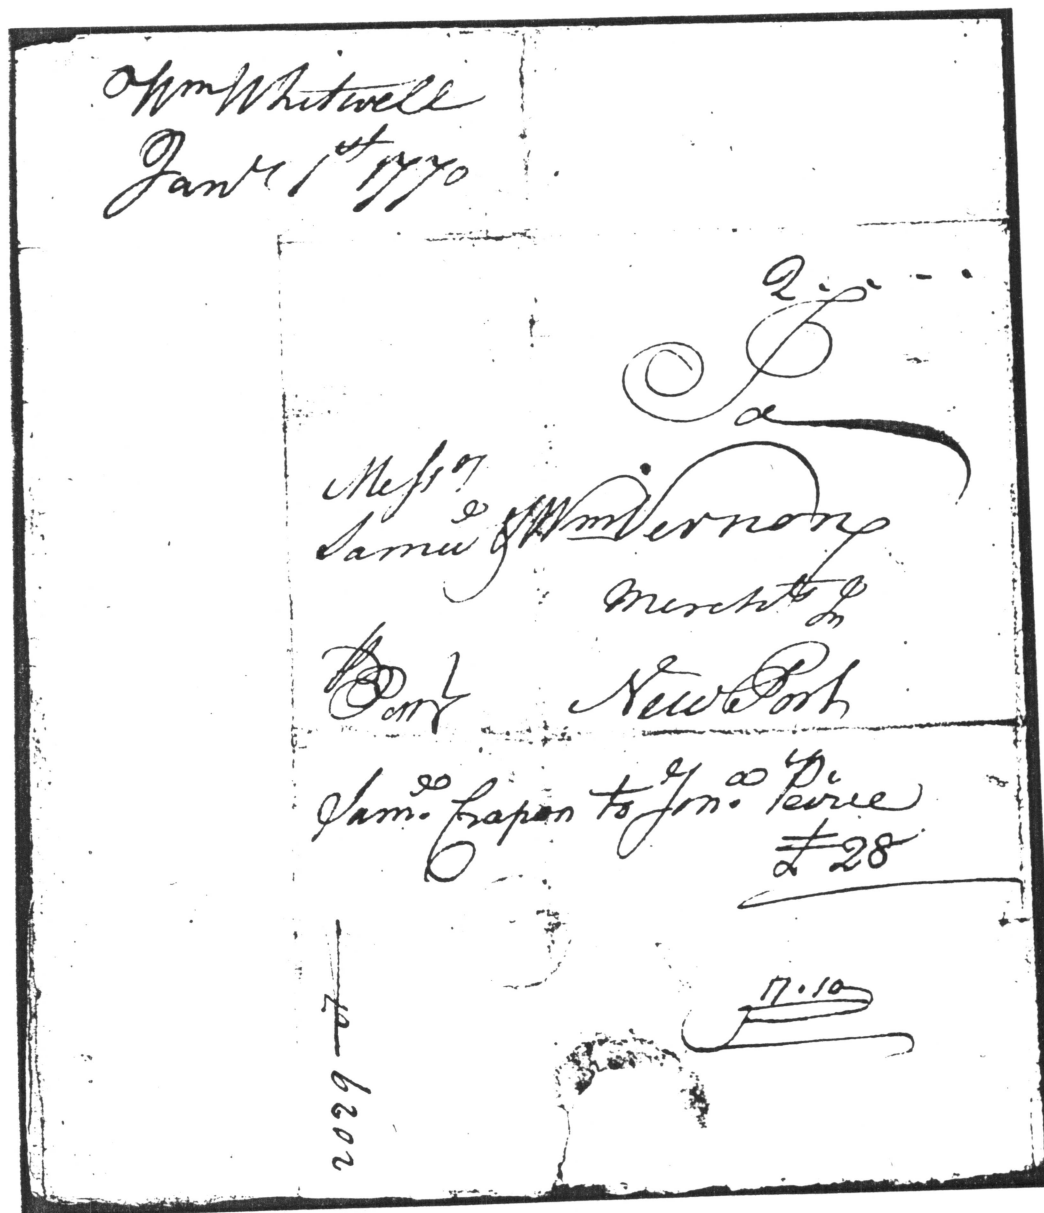 Wm Whitwell
Janr 1st 1770
2
To
Messrs
Samuel & Wm Vernon
Merchts In
New Port
Saml. Crapon to Jon. Peirce
£ 28
17.10